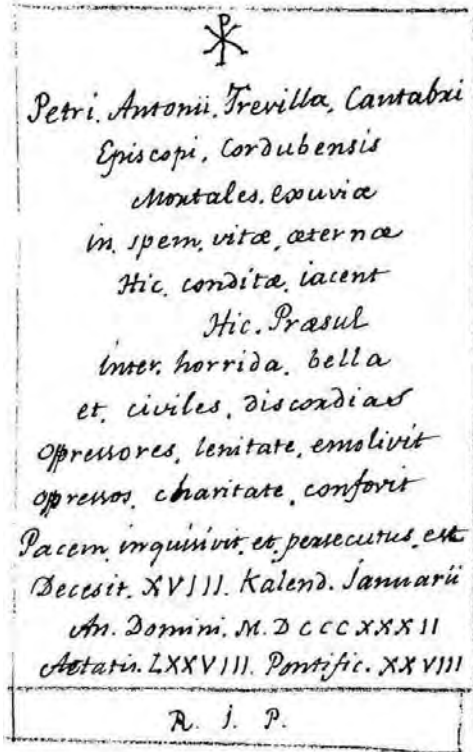 ☧
Petri. Antonii. Trevilla, Cantabri
Episcopi, Cordubensis
Mortales. exuviæ
in. spem, vitæ, æternæ
Hic. conditæ, iacent
Hic. Præsul
inter. horrida, bella
et, civiles, discordias
oppressores, lenitate, emolivit
oppressos, charitate, confovit
Pacem, inquisivit, et, persecutus, est
Decesit. XVIII. Kalend. Januarii
An. Domini. M. D C C C XXX II
Aetatis. LXXVIII. Pontific. XXVIII
R. I. P.